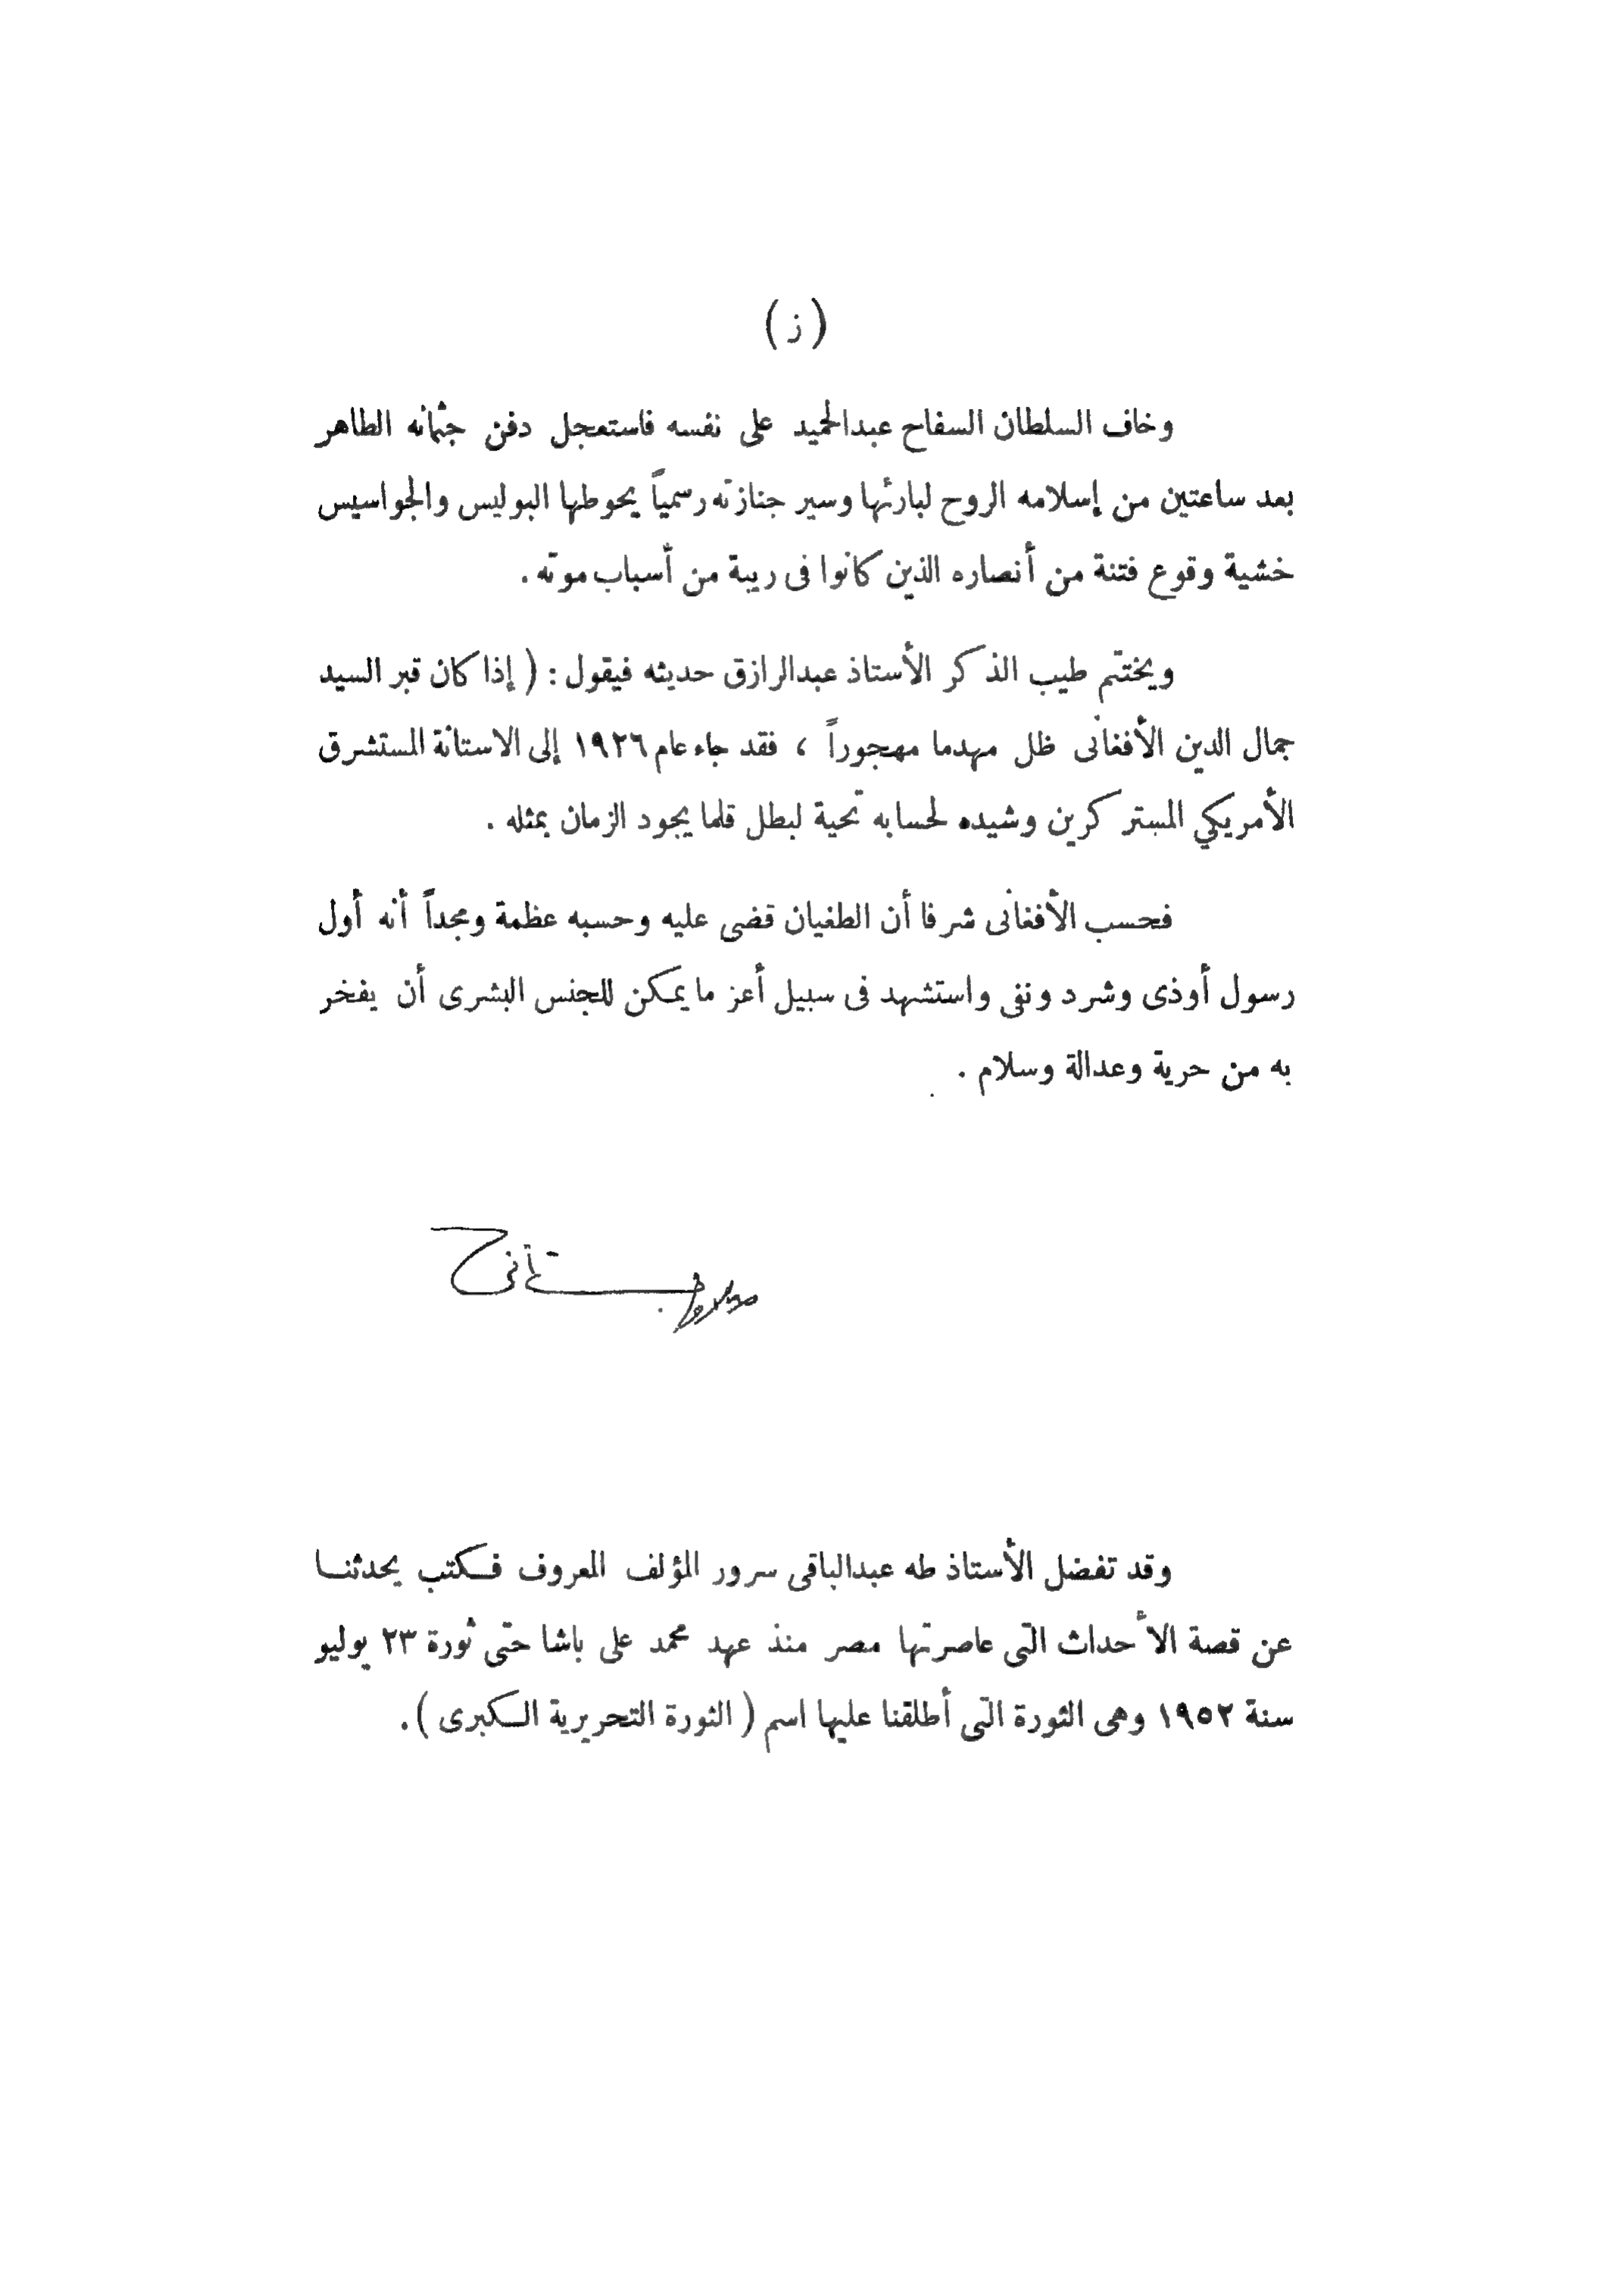 (ز)
وخاف السلطان السفاح عبدالحميد على نفسه فاستعجل دفن جثمانه الطاهر
بعد ساعتين من إسلامه الروح لبارئها وسير جنازته رسمياً يحوطها البوليس والجواسيس
خشية وقوع فتنة من أنصاره الذين كانوا فى ريبة من أسباب موته .
ويختتم طيب الذكر الأستاذ عبدالرازق حديثه فيقول : ( إذا كان قبر السيد
جمال الدين الأفغانى ظل مهدما مهجوراً ، فقد جاء عام ١٩٢٦ إلى الاستانة المستشرق
الأمريكي المستر كرين وشيده لحسابه تحية لبطل قلما يجود الزمان بمثله .
فحسب الأفغانى شرفا أن الطغيان قضى عليه وحسبه عظمة ومجداً أنه أول
رسول أوذى وشرد ونفى واستشهد فى سبيل أعز ما يمكن للجنس البشرى أن يفخر
به من حرية وعدالة وسلام .
وقد تفضل الأستاذ طه عبدالباقى سرور المؤلف المعروف فكتب يحدثنا
عن قصة الأحداث التى عاصرتها مصر منذ عهد محمد على باشا حتى ثورة ٢٣ يوليو
سنة ١٩٥٢ وهى الثورة التى أطلقنا عليها اسم ( الثورة التحريرية الكبرى ) .